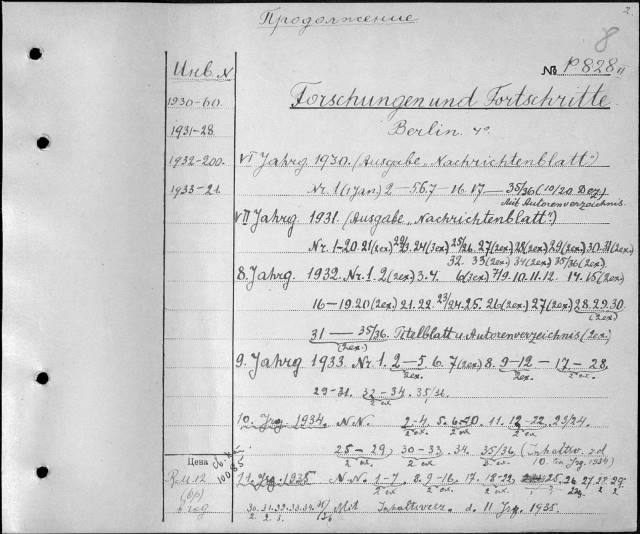 Продолжение
2.
8
Инв. N.
№ P828 II
1930-60.
Forschungen und Fortschritte
1931-28.
Berlin 4°.
1932-200.
VI Jahrg 1930. (Ausgabe „Nachrichtenblatt")
1933-21.
Nr. 1 (1 Jan) 2 — 5.6.7 — 16. 17 — 35/36 (10/20 Dez.)
Mit Autorenverzeichnis.
VII Jahrg 1931. (Ausgabe „Nachrichtenblatt")
Nr. 1-20. 21(2ex) 22/23. 24(3ex) 25/26. 27(2ex) 28(2ex) 29(2ex) 30-31(2ex)
32. 33(2ex) 34(2ex) 35/36(2ex)
8. Jahrg. 1932. Nr. 1. 2(2ex) 3.4. 6(3ex) 7/9.10.11.12. 14.15(2ex)
16-19.20(2ex) 21. 22. 23/24.25. 26(2ex) 27(2ex) 28.29.30
(2ex)
31 — 35/36. Titelblatt u. Autorenverzeichnis (2ex.)
(2ex.)
9. Jahrg 1933 Nr. 1. 2-5 6. 7(2ex) 8. 9-12 — 17. — 28,
2ex. 2ex. 2 ex.
29-31. 32-34. 35/36.
2 ex.
10. Jrg. 1934. N.N. 2-4. 5. 6-10. 11. 12-22. 23/24.
2 ex. 2 ex. 2 ex.
25 — 29, 30-33. 34. 35/36 (Inhaltsv. z. d.
2 ex. 2 ex. 2 ex. 10. Jrg. 1934)
Цена
R.M 12
11. Jrg. 1935 N.N. 1-7. 8. 9-16. 17. 18-22, 25. 26. 27. 28. 29.
2 ex. 2 ex. 2 ex.
30. 31. 32. 33. 34. 35/36 Mit Inhaltsverz. d. 11 Jrg. 1935.
2. 2. 2.